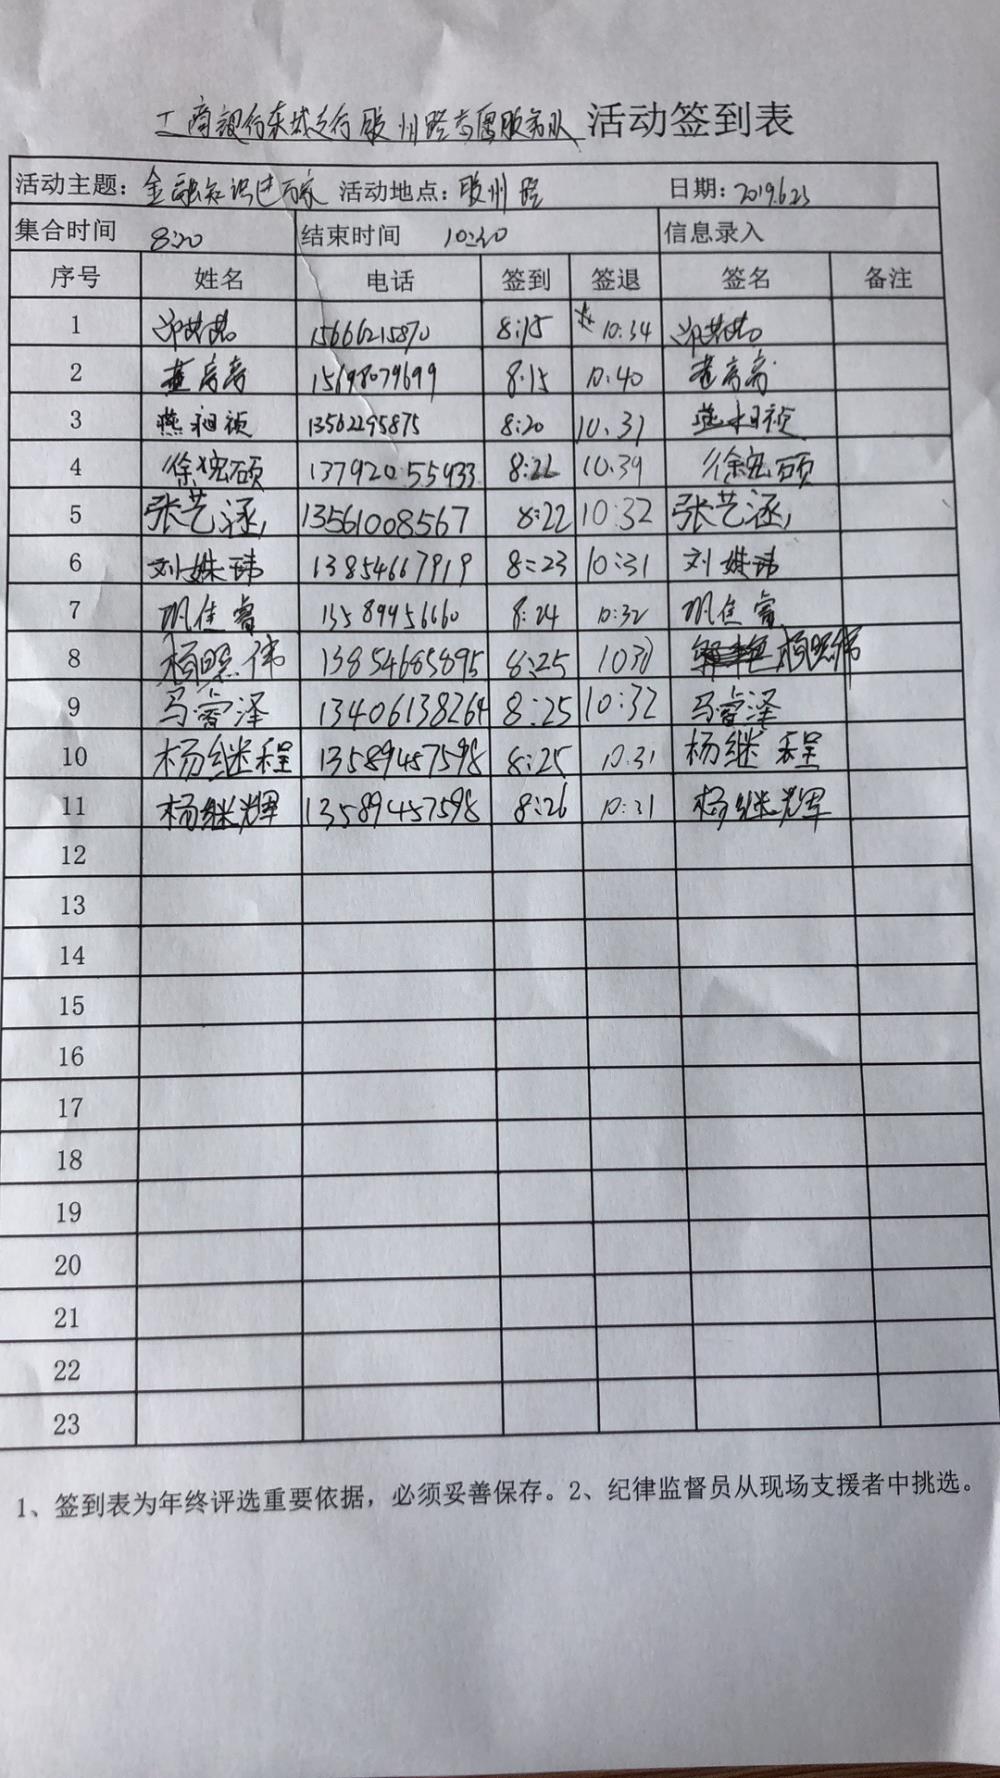 工商银行东城支行胶州路志愿服务队 活动签到表
活动主题：金融知识进万家 活动地点：胶州路 日期：2019.6.23
集合时间 8:20 结束时间 10:30 信息录入
序号 姓名 电话 签到 签退 签名 备注
1 15666215870 8:15 10:34
2 15698079699 8:15 10:40
3 燕相祯 13562295875 8:20 10:31 燕相祯
4 徐宏硕 13792055933 8:22 10:39 徐宏硕
5 张艺涵 13561008567 8:22 10:32 张艺涵
6 刘姝玮 13854667919 8:23 10:31 刘姝玮
7 巩佳睿 13589956660 8:24 10:32 巩佳睿
8 杨照伟 13854685895 8:25 1030 杨照伟
9 马睿泽 13406138264 8:25 10:32 马睿泽
10 杨继程 13589457598 8:25 10:31 杨继程
11 杨继辉 13589457598 8:26 10:31 杨继辉
12
13
14
15
16
17
18
19
20
21
22
23
1、签到表为年终评选重要依据，必须妥善保存。2、纪律监督员从现场支援者中挑选。